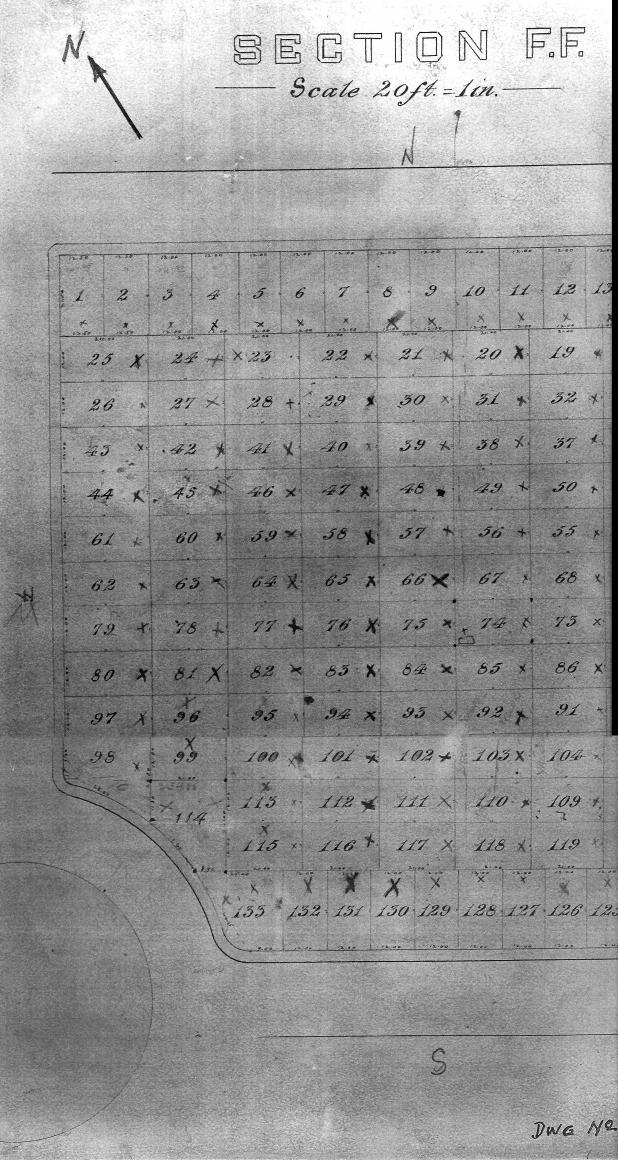 N
SECTION F.F.
Scale 20ft. = 1in.
N
1 2 3 4 5 6 7 8 9 10 11 12 13
25 24 23 22 21 20 19
26 27 28 29 30 31 32
43 42 41 40 39 38 37
44 45 46 47 48 49 50
61 60 59 58 57 56 55
62 63 64 65 66 67 68
79 78 77 76 75 74 73
80 81 82 83 84 85 86
97 96 95 94 93 92 91
98 99 100 101 102 103 104
113 112 111 110 109
114
115 116 117 118 119
133 132 131 130 129 128 127 126 125
S
DWG No